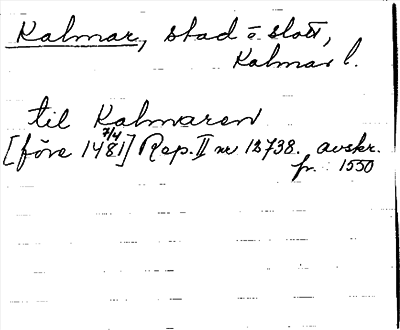 Kalmar, stad o slott,
Kalmar l.
til Kalmaren
[före 7/4 1481] Rep. II nr 12738. avskr.
fr. 1550